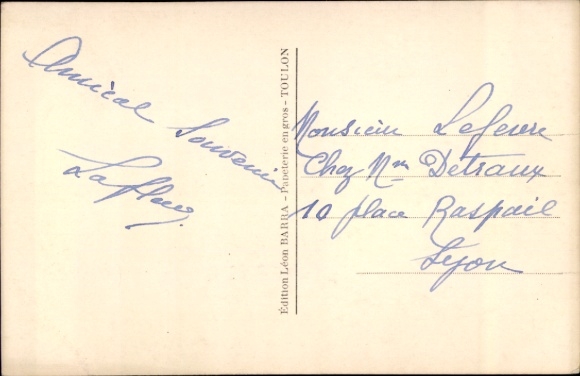 Amical
Souvenir
Édition Léon BARRA - Papeterie en gros - TOULON
Monsieur Lefevre
Chez Mme Detraux
10 place Raspail
Lyon